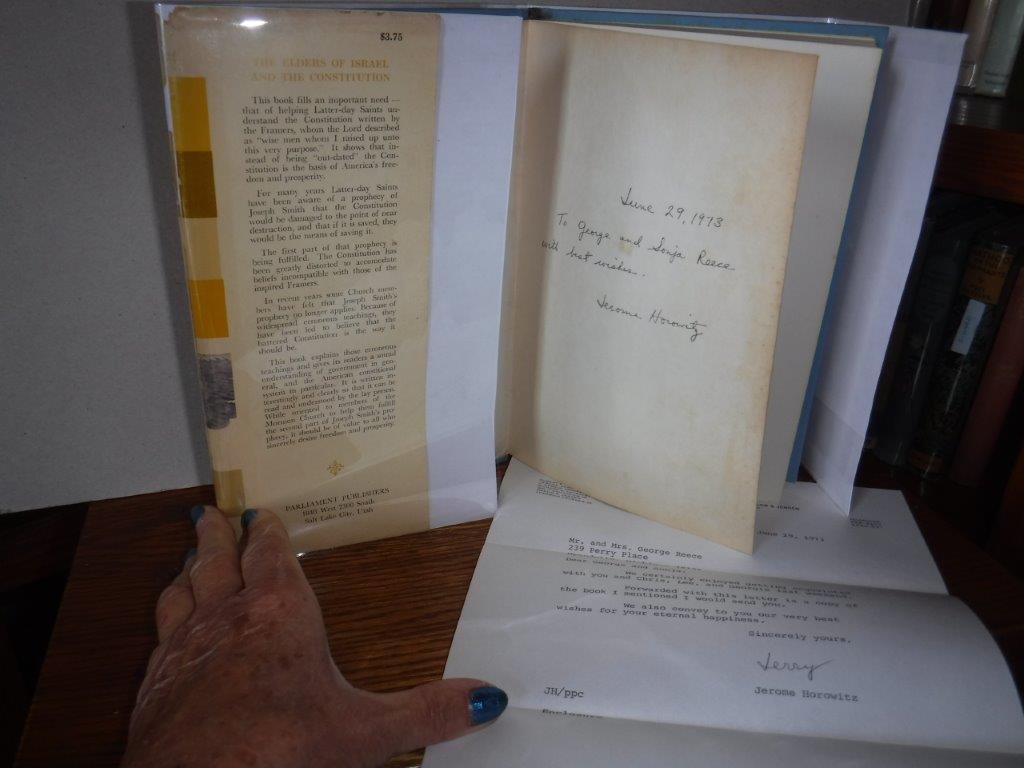 $3.75
THE ELDERS OF ISRAEL
AND THE CONSTITUTION
This book fills an important need —
that of helping Latter-day Saints un-
derstand the Constitution written by
the Framers, whom the Lord described
as "wise men whom I raised up unto
this very purpose." It shows that in-
stead of being "out-dated" the Con-
stitution is the basis of America's free-
dom and prosperity.
For many years Latter-day Saints
have been aware of a prophecy of
Joseph Smith that the Constitution
would be damaged to the point of near
destruction, and that if it is saved, they
would be the means of saving it.
The first part of that prophecy is
being fulfilled. The Constitution has
been greatly distorted to accomodate
beliefs incompatible with those of the
inspired Framers.
In recent years some Church mem-
bers have felt that Joseph Smith's
prophecy no longer applies. Because of
widespread erroneous teachings, they
have been led to believe that the
battered Constitution is the way it
should be.
This book explains those erroneous
teachings and gives its readers a sound
understanding of government in gen-
eral, and the American constitutional
system in particular. It is written in-
terestingly and clearly so that it can be
read and understood by the lay person.
While oriented to members of the
Mormon Church to help them fulfill
the second part of Joseph Smith's pro-
phecy, it should be of value to all who
sincerely desire freedom and prosperity.
PARLIAMENT PUBLISHERS
West 2300 South
Salt Lake City, Utah
June 29, 1973
To George and Sonja Reece
with best wishes.
Jerome Horowitz
June 29, 1973
Mr. and Mrs. George Reece
239 Perry Place
Dear George and
We certainly enjoyed getting
with you and Chris, and
Forwarded with this letter is a copy of
the book I mentioned I would send you.
We also convey to you our very best
wishes for your eternal happiness.
Sincerely yours,
Jerry
JH/ppc
Jerome Horowitz
Enclosure